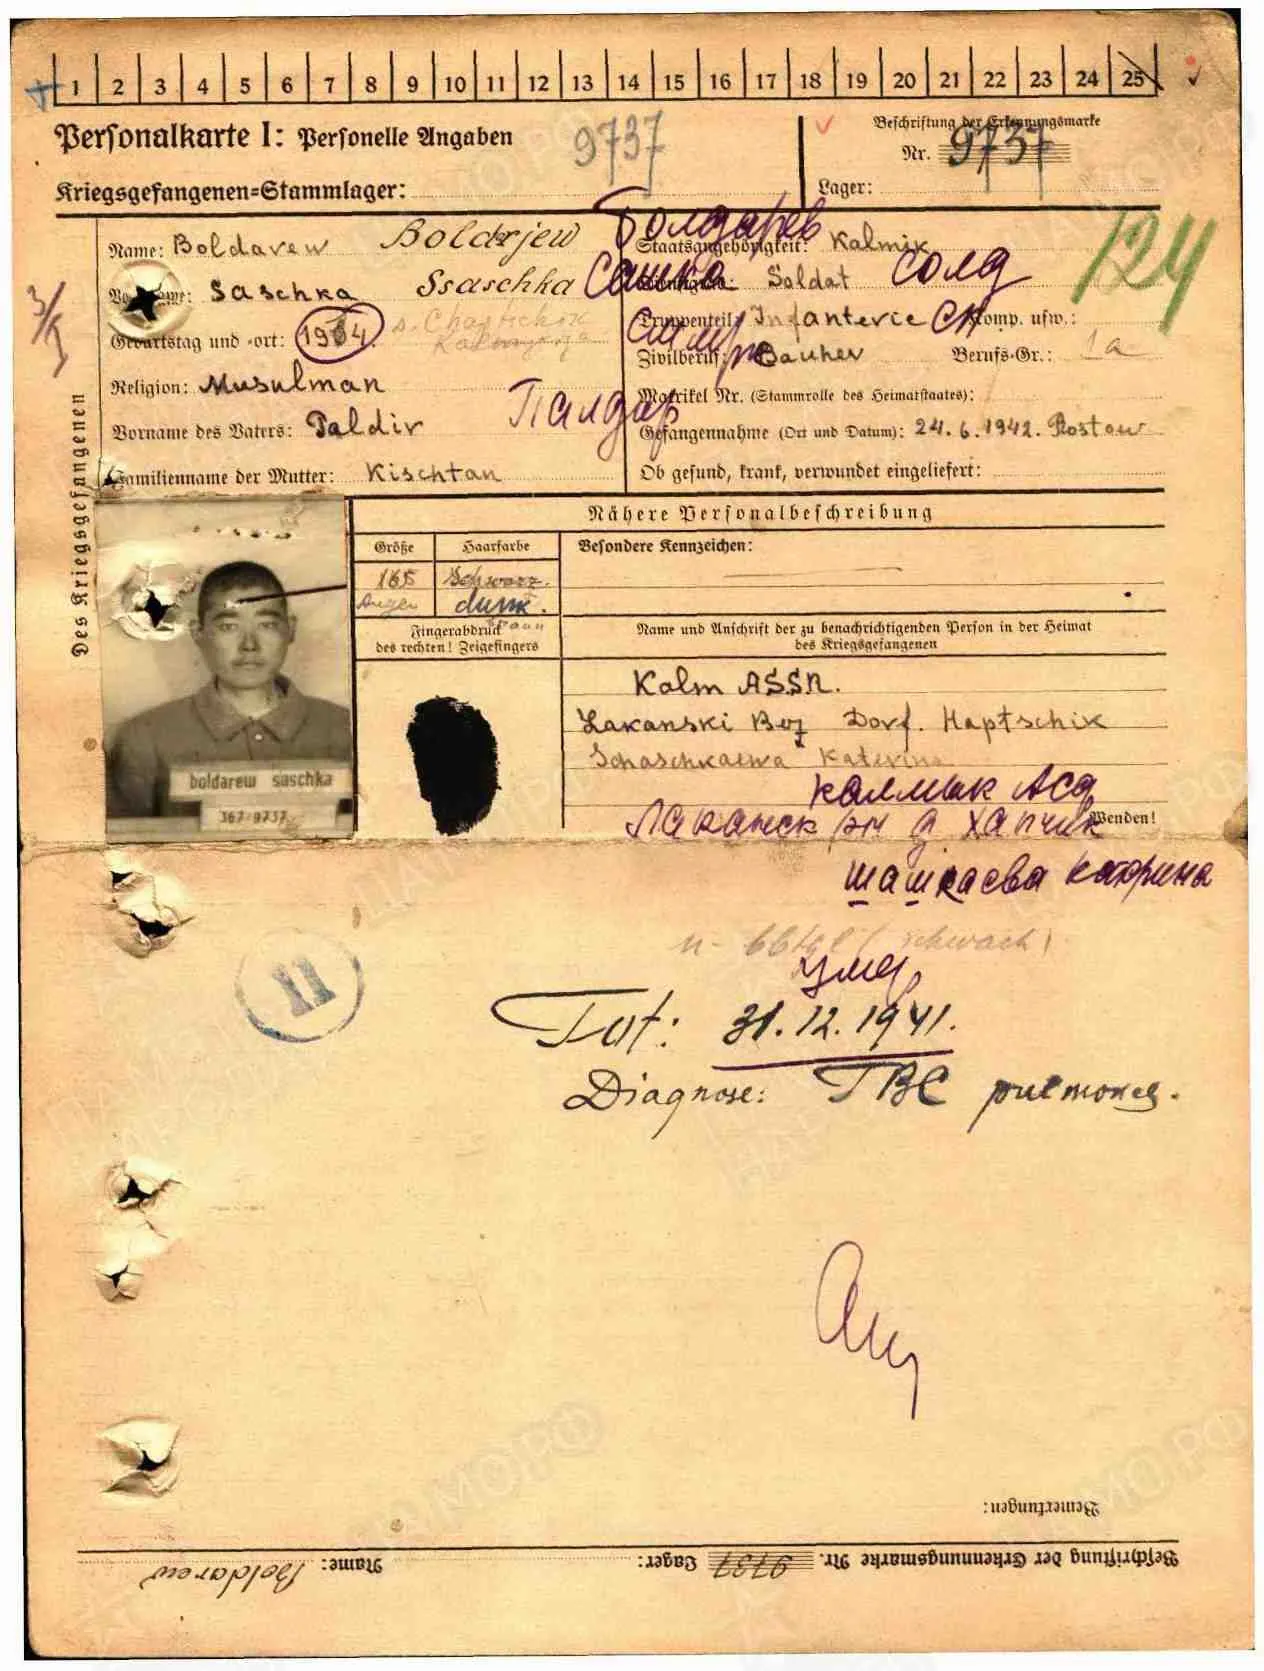 1 2 3 4 5 6 7 8 9 10 11 12 13 14 15 16 17 18 19 20 21 22 23 24 25
Personalkarte I: Personelle Angaben
9737
Beschriftung der Erkennungsmarke
Nr. 9737
Kriegsgefangenen=Stammlager:
Lager:
Des Kriegsgefangenen
Name: Boldarew Boldrjew Болдарев
Staatsangehörigkeit: Kalmik
124
Vorname: Saschka Ssaschka Сашка
Dienstgrad: Soldat солд
Geburtstag und =ort: 1904.
Truppenteil: Infanterie Komp. usw.:
Zivilberuf: Bauher Berufs=Gr.: 1a
Religion: Musulman
Matrikel Nr. (Stammrolle des Heimatstaates):
Vorname des Vaters: Paldir Палдир
Gefangennahme (Ort und Datum): 24.6.1942. Rostow
Familienname der Mutter: Kischtan
Ob gesund, krank, verwundet eingeliefert:
Nähere Personalbeschreibung
Größe
Haarfarbe
Besondere Kennzeichen:
165
Schwarz.
Augen
dunk.
braun
Fingerabdruck
des rechten! Zeigefingers
Name und Anschrift der zu benachrichtigenden Person in der Heimat
des Kriegsgefangenen
Kalm ASSR.
Lakanski Bez Dorf. Haptschik
Schaschkaewa Katerina
boldarew saschka
367 9737
калмык Асс
Лаканск рн д хапчик
Wenden!
шашкаева катрина
(schwach)
II
умер
Tot: 31.12.1941.
Diagnose: TBC pulmones.
Bemerkungen:
Beschriftung der Erkennungsmarke Nr. 9737 Lager:
Name: Boldarew